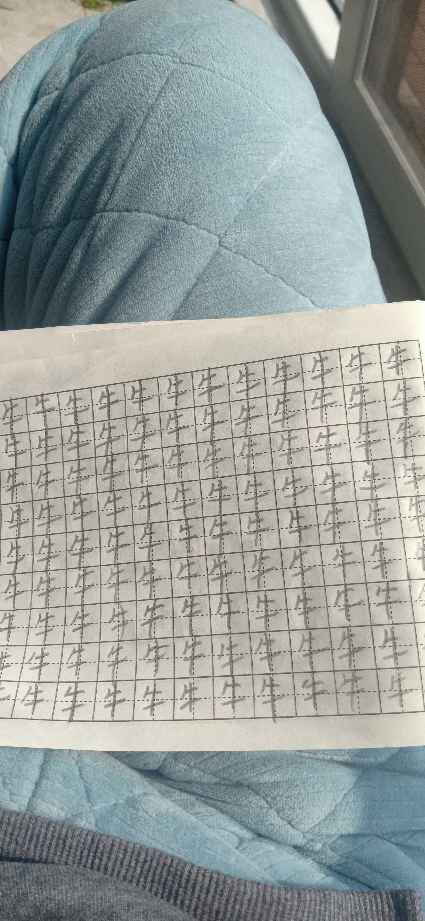 牛牛牛牛牛牛牛牛牛牛牛牛
牛牛牛牛牛牛牛牛牛牛牛牛
牛牛牛牛牛牛牛牛牛牛牛牛
牛牛牛牛牛牛牛牛牛牛牛牛
牛牛牛牛牛牛牛牛牛牛牛牛
牛牛牛牛牛牛牛牛牛牛牛牛
牛牛牛牛牛牛牛牛牛牛牛
牛牛牛牛牛牛牛牛牛牛
牛牛牛牛牛牛牛牛牛牛